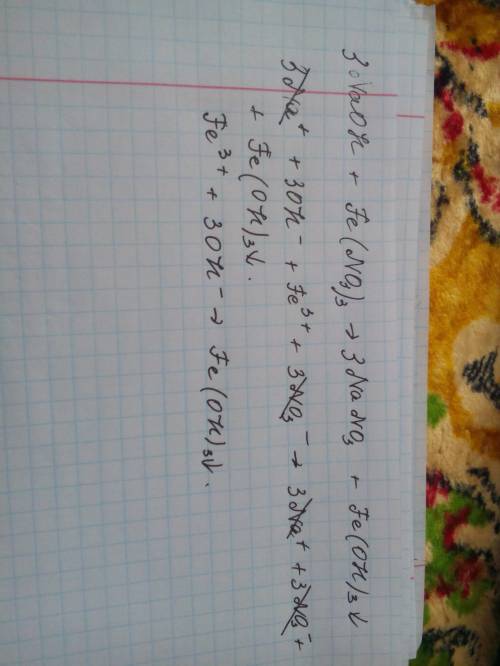 3NaOH + Fe(NO₃)₃ → 3NaNO₃ + Fe(OH)₃↓
3Na⁺ + 3OH⁻ + Fe³⁺ + 3NO₃⁻ → 3Na⁺ + 3NO₃⁻ +
+ Fe(OH)₃↓.
Fe³⁺ + 3OH⁻ → Fe(OH)₃↓.